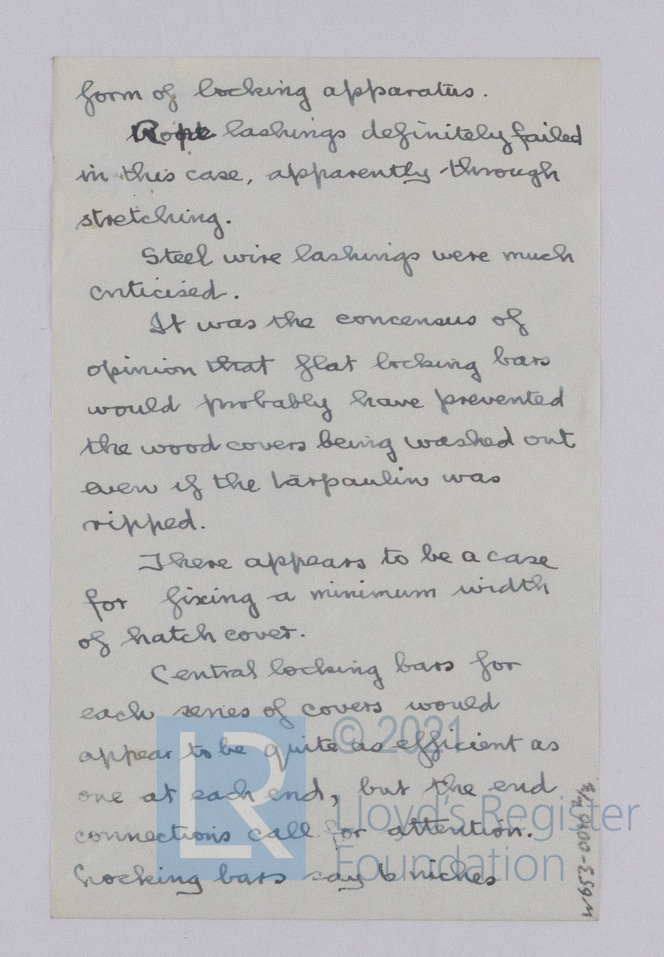 form of locking apparatus.
Rope lashings definitely failed
in this case, apparently through
stretching.
Steel wire lashings were much
criticised.
It was the concensus of
opinion that flat locking bars
would probably have prevented
the wood covers being washed out
even if the tarpaulin was
ripped.
There appears to be a case
for fixing a minimum width
of hatch cover.
Central locking bars for
each series of covers would
appear to be quite as efficient as
one at each end, but the end
connections call for attention.
Locking bars say 6 inches
LR
© 2021
Lloyd's Register
Foundation